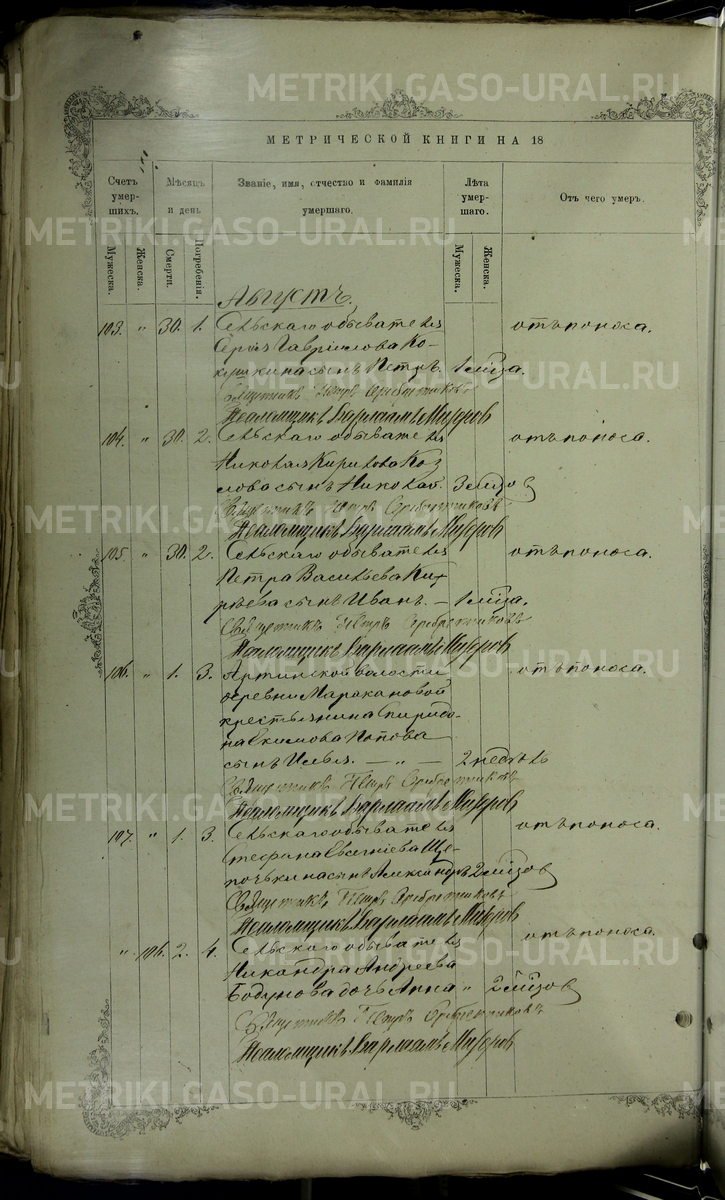 МЕТРИЧЕСКОЙ КНИГИ НА 18
Счетъ умершихъ.
Мѣсяцъ и день
Званіе, имя, отчество и фамилія умершаго.
Лѣта умершаго.
Отъ чего умеръ.
Мужеска.
Женска.
Смерти.
Погребенія.
Мужеска.
Женска.
Августъ.
103. " 30. 1. Сельскаго обывателя отъ поноса.
Сергѣя Гаврилова Ко-
кушкина сынъ Петръ. 1 мѣсяца.
Священникъ Петръ Серебренниковъ
Псаломщикъ Варлаамъ Мизеровъ
104. " 30. 2. Сельскаго обывателя отъ поноса.
Николая Кирилова Коз
лова сынъ Николай. 3 мѣсяцов
Священникъ Петръ Серебренниковъ
Псаломщикъ Варлаамъ Мизеровъ
105. " 30. 2. Сельскаго обывателя отъ поноса.
Петра Васильева Ки
рѣева сынъ Иванъ. — 1 мѣсяца.
Священникъ Петръ Серебренниковъ
Псаломщикъ Варлаамъ Мизеровъ
106. " 1. 3. Артинской волости отъ поноса.
деревни Маракановой
крестьянина Спиридо-
на Екимова Попова
сынъ Илья. — " — 2 недѣль
Священникъ Петръ Серебренниковъ
Псаломщикъ Варлаамъ Мизеровъ
107. " 1. 3. Сельскаго обывателя отъ поноса.
Стефана Евгеніева Ще-
почкина сынъ Александръ 2 мѣсяцов
Священникъ Петръ Серебренниковъ
Псаломщикъ Варлаамъ Мизеровъ
" 106. 2. 4. Сельскаго обывателя отъ поноса.
Никандра Андреева
Бодунова дочь Анна " 2 мѣсяцов
Священникъ Петръ Серебренниковъ
Псаломщикъ Варлаамъ Мизеровъ
METRIKI.GASO-URAL.RU